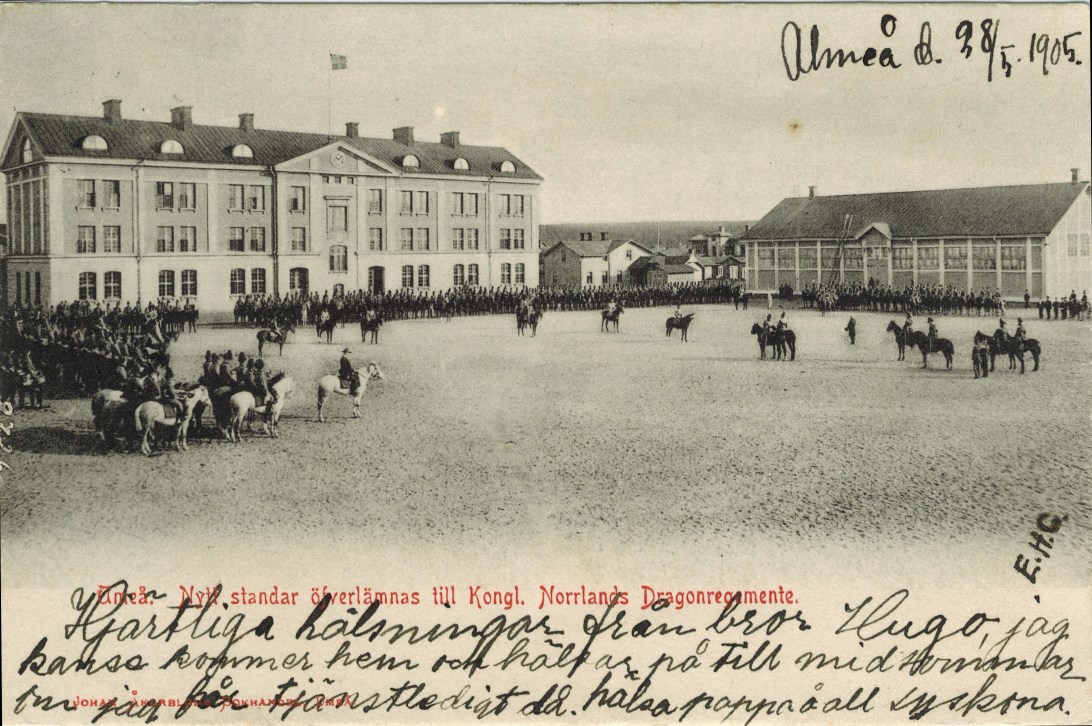 Umeå d. 28/5. 1905.
E.H.G.
Umeå. Nytt standar öfverlämnas till Kongl. Norrlands Dragonregemente.
Hjärtliga hälsningar från bror Hugo, jag
kanse kommer hem och hälsar på till midsommar
om jag får tjänstledigt då. hälsa pappa å all syskona.
JOHAN ÅKERBLOMS BOKHANDEL, UMEÅ